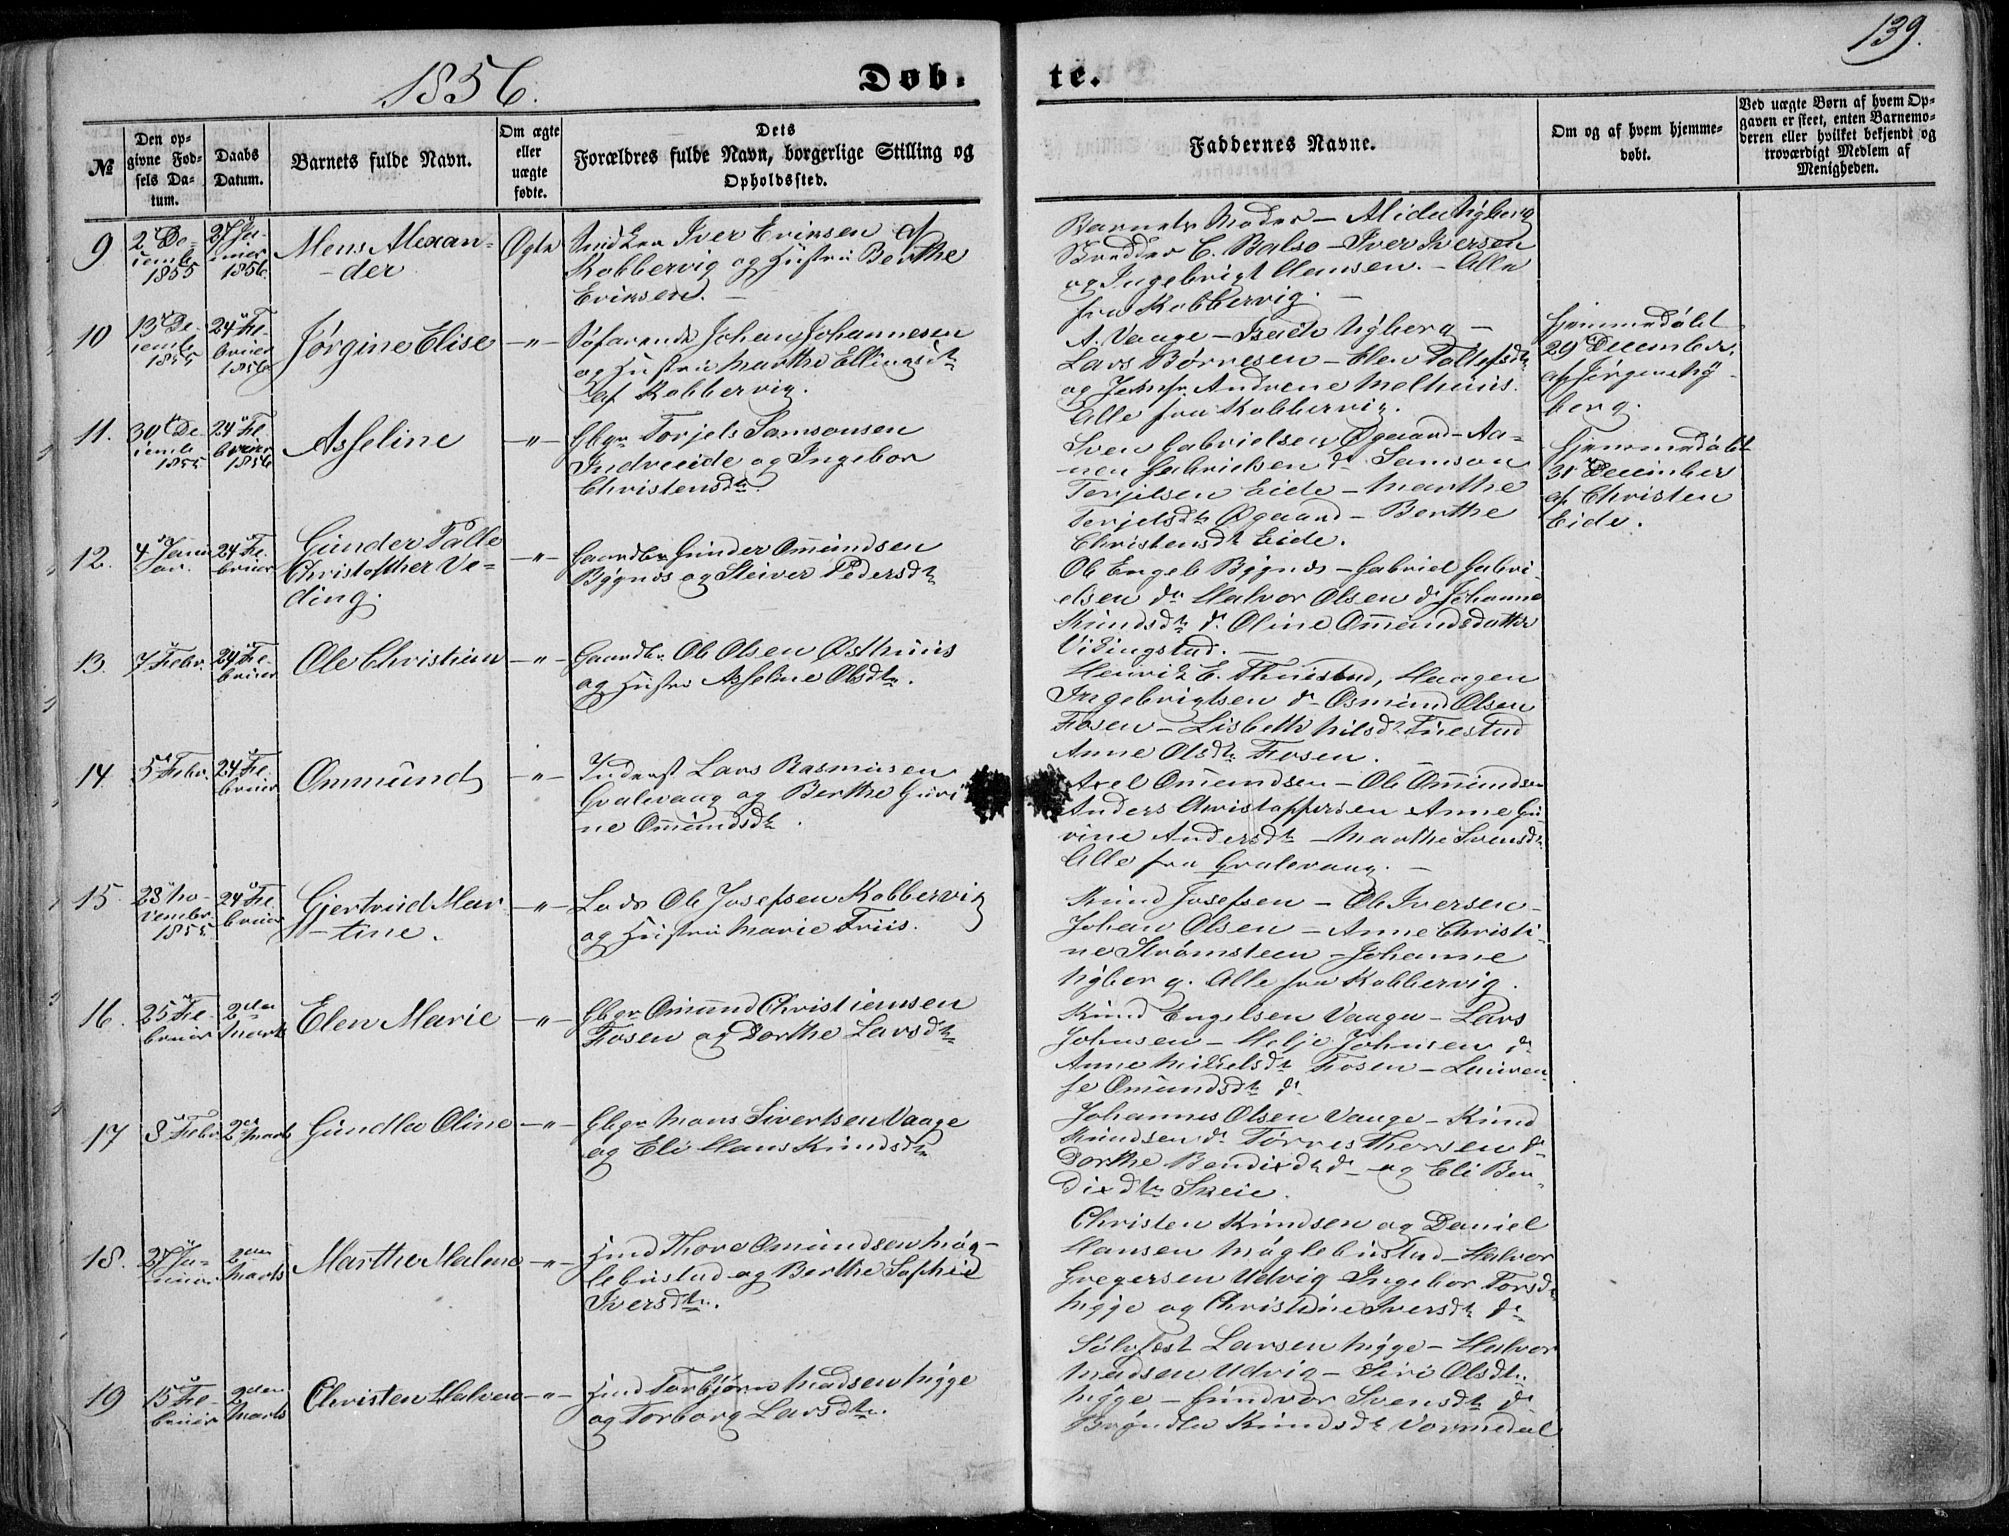 139.
1856.
Døb-
te.
№
Den op-
givne Fød-
sels Da-
tum.
Daabs
Datum.
Barnets fulde Navn.
Om ægte
eller
uægte
fødte.
Dets
Forældres fulde Navn, borgerlige Stilling og
Opholdssted.
Faddernes Navne.
Om og af hvem hjemme-
døbt.
Ved uægte Børn af hvem Op-
gaven er skeet, enten Barnemo-
deren eller hvilket bekjendt og
troværdigt Medlem af
Menigheden.
9
2 De-
cemb
1855
27 Ja-
nuar
1856
Mens Alexan-
-der
Ægte
Snidker Iver Eriksen af
Kobbervig og Hustru Berthe
Eriksen. -
Barnets Moder - Alida Nyberg
Skrædder C. Balso - Iver Iversen
og Ingebrigt Hansen. - Alle
fra Kobbervig. -
10
13 De-
cemb
1855
24 Fe-
bruar
1856
Jørgine Elise
-"-
Søfarende Johan Johannesen
og Hustru Marthe Ellingsdtr
af Kobbervig.
A. Vaage - Isach Nyberg -
Lars Børresen - Elen Tollefsdtr
og Jomfr. Andrene Melhuus.
Alle fra Kobbervig.
Hjemmedøbt
29 December
af Jørgen Ny-
berg.
11.
30 De-
cemb
1855
24 Fe-
bruar
1856
Asseline
-"-
Gbgr Torjels Samsonsen
Indreeide og Ingebor
Christensdtr.
Sven Gabrielsen Øgaard - Aa-
nen Gabrielsen do Samson
Terjelsen Eide - Marthe
Terjelsdtr Øgaard - Berthe
Christensdtr Eide.
Hjemmedøbt
31 December
af Christen
Eide.
12.
4 Janu
ar.
24 Fe-
bruar
Gunder Palle
Christopher Ve-
ding.
-"-
Gaardbr Gunder Omundsen
Bygnes og Steiver Pedersdtr
Ole Engels Bygnes - Gabriel Gabri-
elsen do Halvor Olsen do Johanne
Knudsdtr do Oline Omundsdatter
Vikingstad. -
13.
7 Febr.
24 Fe-
bruar
Ole Christian
-"-
Gaardbr. Ole Olsen Østhuus
og Hustru Asseline Olsdtr.
Henrik E. Thuestad, Haagen
Ingebrigtsen do Osmund Olsen
Fosen - Lisbeth Nilsdtr Tuestad
Anne Olsdtr Fosen. -
14
5 Febr.
24 Fe-
bruar
Ommund
-"-
Inderst Lars Rasmusen
Gvalevaag og Berthe Guri
ne Omundsdtr.
Axel Omundsen - Ole Omundsen
Anders Christophersen Anne Gu-
rine Andersdtr - Marthe Svensdtr
Alle fra Gvalevaag. -
15.
28 No-
vembr.
1855
24 Fe-
bruar
Gjertrud Mar
-tine.
-"-
Lods Ole Josefsen Kobbervig
og Hustru Marie Friis.
Knud Josefsen - Ole Iversen -
Johan Olsen - Anne Christi-
ne Strømsteen - Johanne
Nyberg. Alle fra Kobbervig.
16.
25 Fe-
bruar
2den
Marts
Elen Marie
-"-
Gbgr Omund Christiansen
Fosen og Dorthe Larsdtr
Knud Engelsen Vaage - Lars
Johnsen - Helje Johnsen do
Anne Mikkelsdtr Fosen - Lauren-
se Omundsdtr do
17
8 Febr
2den Marts
Gundla Oline
-"-
Gbgr Mons Sivertsen Vaage
og Eli Hans Knudsdtr
Johannes Olsen Vaage - Knud
Knudsen do Tørres Thorsen do
Dorthe Bendixdtr do - og Eli Ben-
dixdtr Skeie.
18.
27 Ja-
nuar
2den
Marts
Marthe Malene
-"-
Hmd Thore Omundsen Møg-
lebustad og Berthe Sophie
Iversdtr.
Christen Knudsen og Daniel
Hansen Møglebustad - Halvor
Gregersen Udvig Ingebor Torsdtr
Nygge og Christine Iversdtr do
19
15 Fe-
bruar
2den
Marts
Christen Halvor
-"-
Hmd Torbjørn Madsen Nygge
og Torborg Larsdtr.
Sølvfest Larsen Nygge - Halvor
Madsen Udvig - Siri Olsdtr.
Nygge - Gundvor Svensdtr do
Brøndla Knudsdtr Vormedal